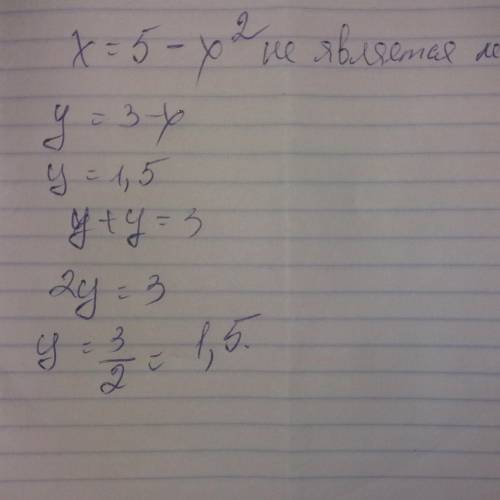 x = 5 - x² не является
y = 3 - y
y = 1,5
y + y = 3
2y = 3
y = 3/2 = 1,5.